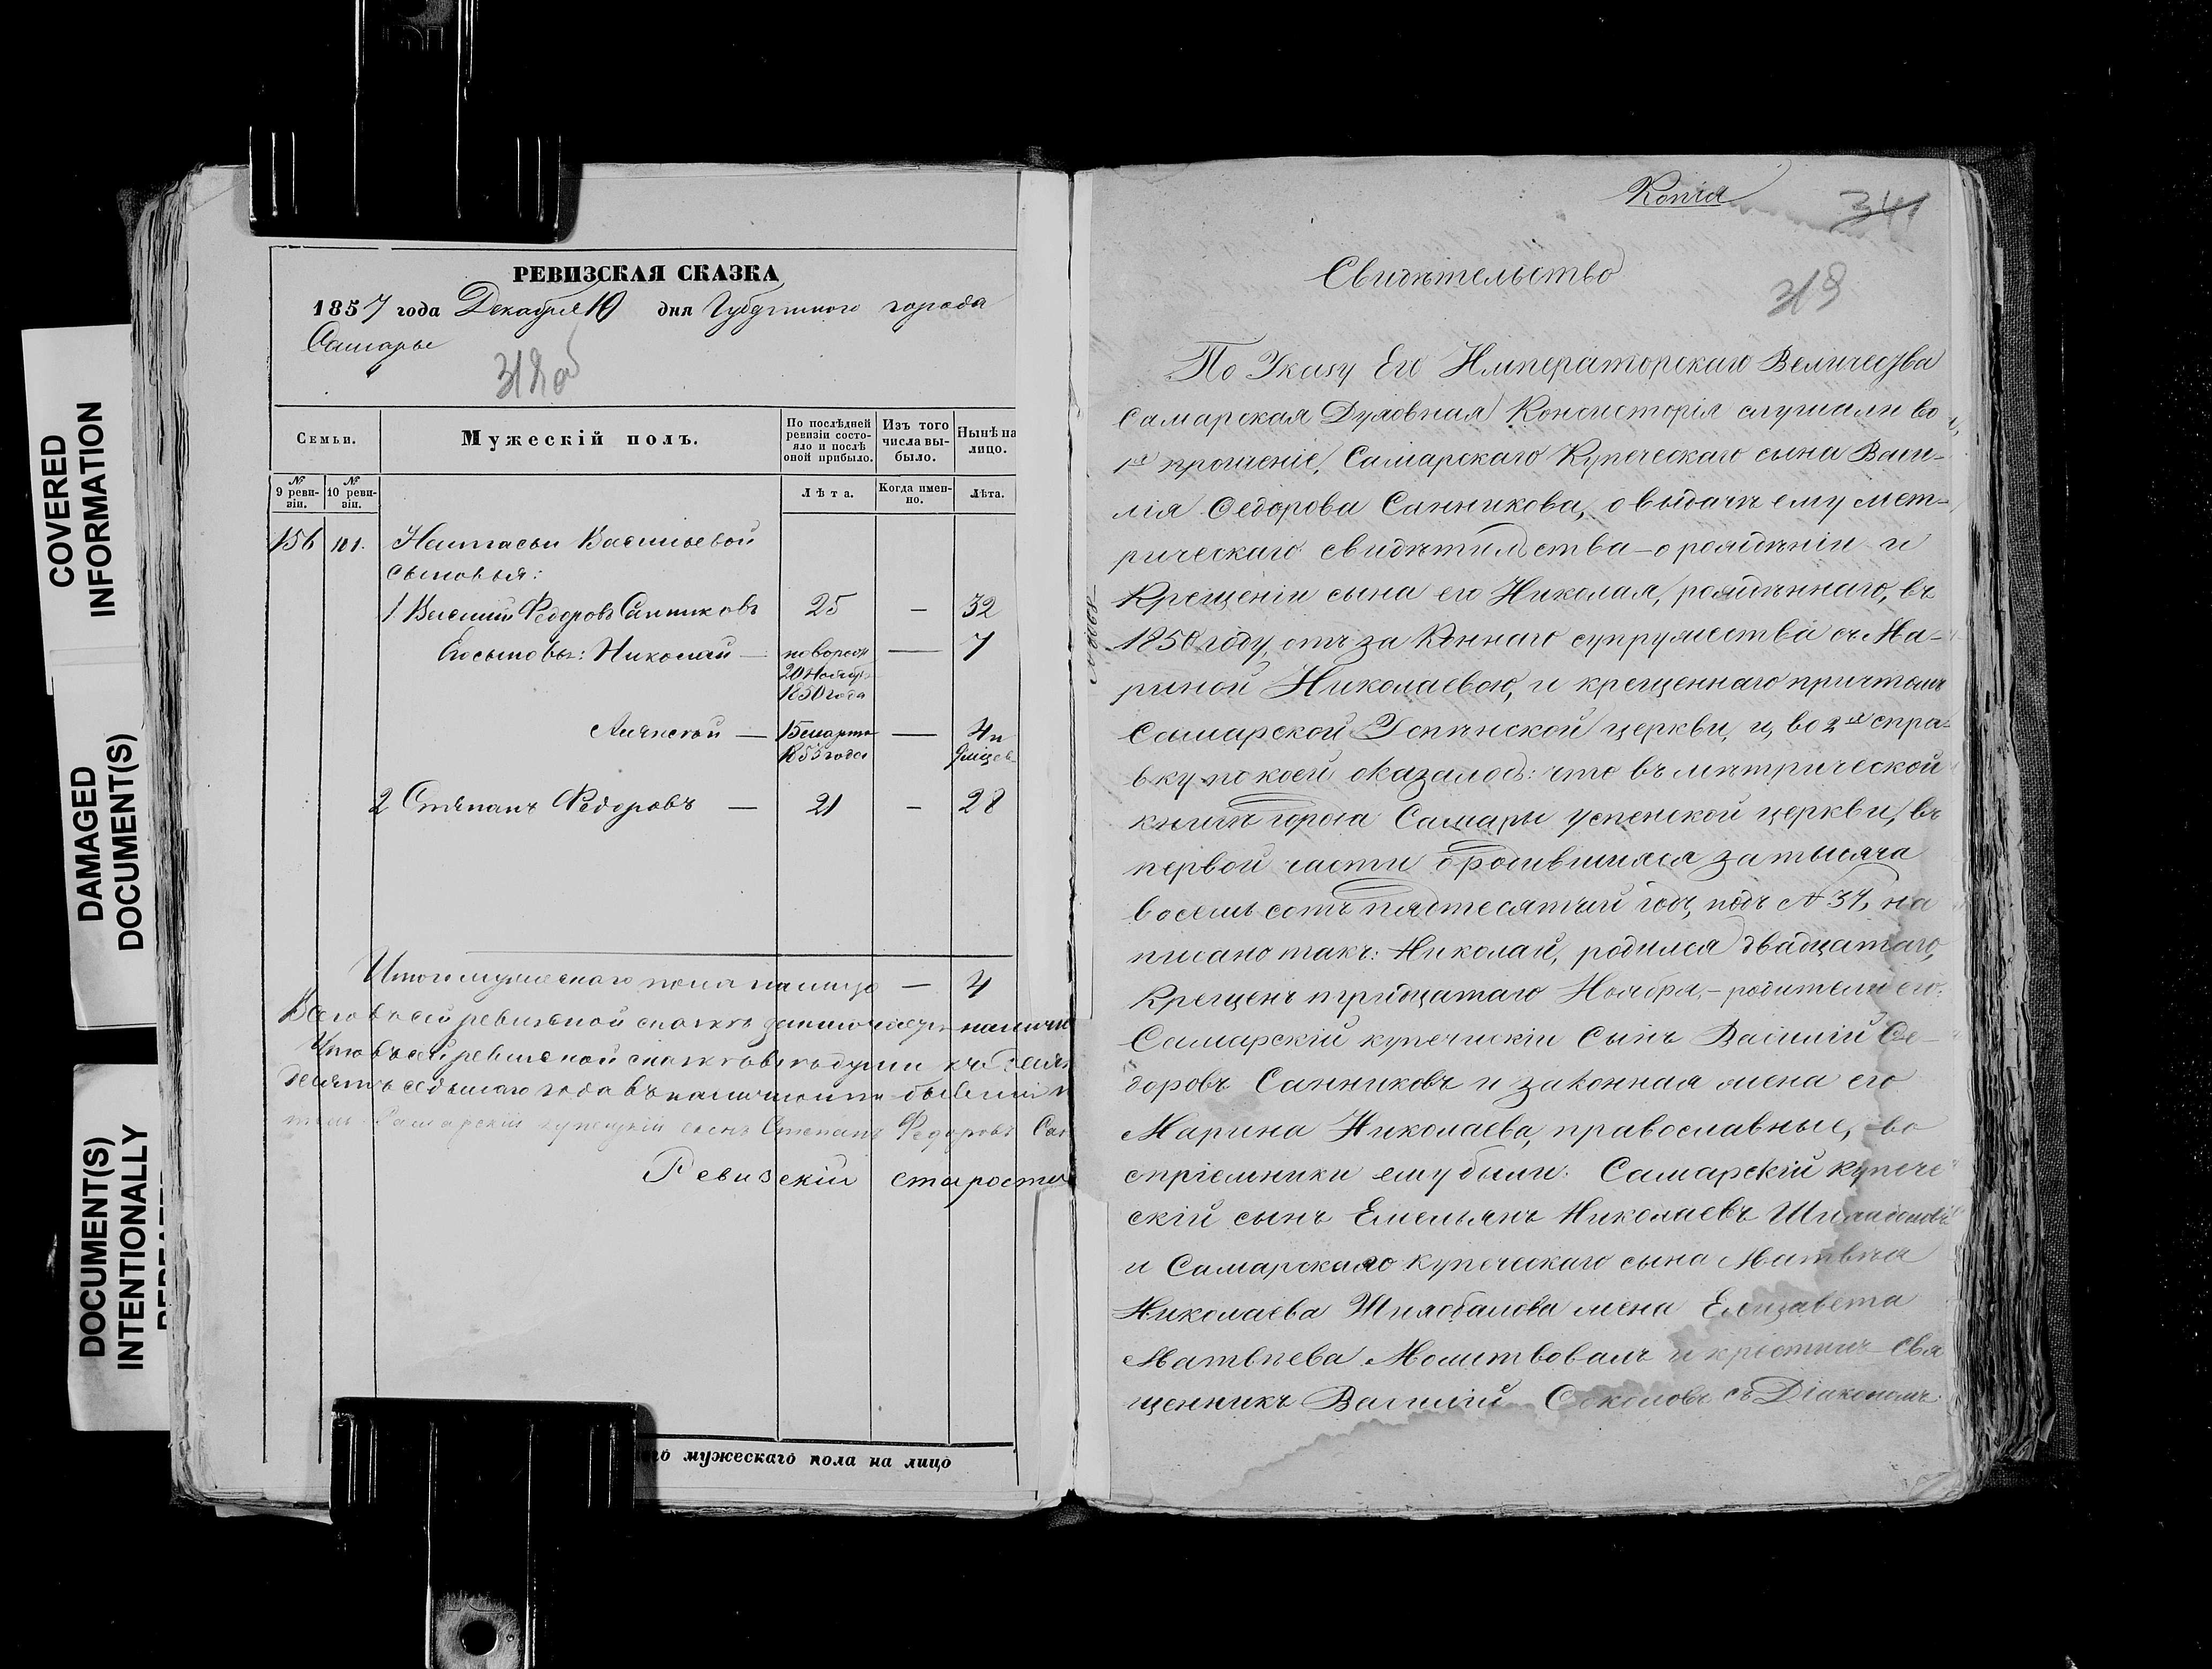 COVERED
INFORMATION
DAMAGED
DOCUMENT(S)
DOCUMENT(S)
INTENTIONALLY
РЕВИЗСКАЯ СКАЗКА
1857 года Декабря 10 дня Губернскаго города
Самары
318об
Семьи.
Мужескій полъ.
По послѣдней ревизіи состояло и послѣ оной прибыло.
Изъ того числа выбыло.
Нынѣ на лицо.
№ 9 ревизіи.
№ 10 ревизіи.
Лѣта.
Когда именно.
Лѣта.
156 101. Настасьи Васильевой
сыновья:
1 Василий Федоровъ Санниковъ 25 — 32
Его сыновья: Николай — новорож 20 Ноября 1850 года — 7
Алексѣй — 15 марта 1853 года — 4 и 9 мѣсяц
2 Степанъ Федоровъ — 21 — 28
Итого мужескаго пола на лицо — 4
Всего въ сей ревизской сказкѣ заключается наличн
Что въ сей ревизской сказкѣ всѣ души
десятъ седьмаго года въ наличности
Самарскій купецкій сынъ Степанъ Федоровъ Сан
Ревизскій староста
го мужескаго пола на лицо
Копія
341
319
Свидѣтельство
По Указу Его Императорскаго Величества
Самарская Духовная Консисторія слушали во
1х прошеніе, Самарскаго Купеческаго сына Васи-
лія Ѳедорова Санникова, о выдачѣ ему мет-
рическаго свидѣтельства о рожденіи и
Крещеніи сына его Николая, рожденнаго, въ
1850 году, отъ законнаго супружества съ Ма-
риной Николаевою, и крещеннаго причтомъ
Самарской Успенской церкви, и, во 2х спра-
вку по коей оказалось: что въ метрической
книгѣ города Самары Успенской церкви, въ
первой части о родившихся за тысяча
восемь сотъ пядтесятый годъ, подъ № 37, на
писано такъ: Николай, родился двадцатаго,
Крещенъ тридцатаго Ноября, – родители его:
Самарскій купеческій Сынъ Василій Ѳе-
доровъ Санниковъ и законная жена его
Марина Николаева, православные, во
спріемники ему были: Самарскій купече
скій сынъ Емельянъ Николаевъ
и Самарскаго купеческаго сына Матвѣя
Николаева жена Елизавета
Матвѣева Молитвовалъ и крестилъ Свя
щенникъ Василій Соколовъ съ Діакономъ